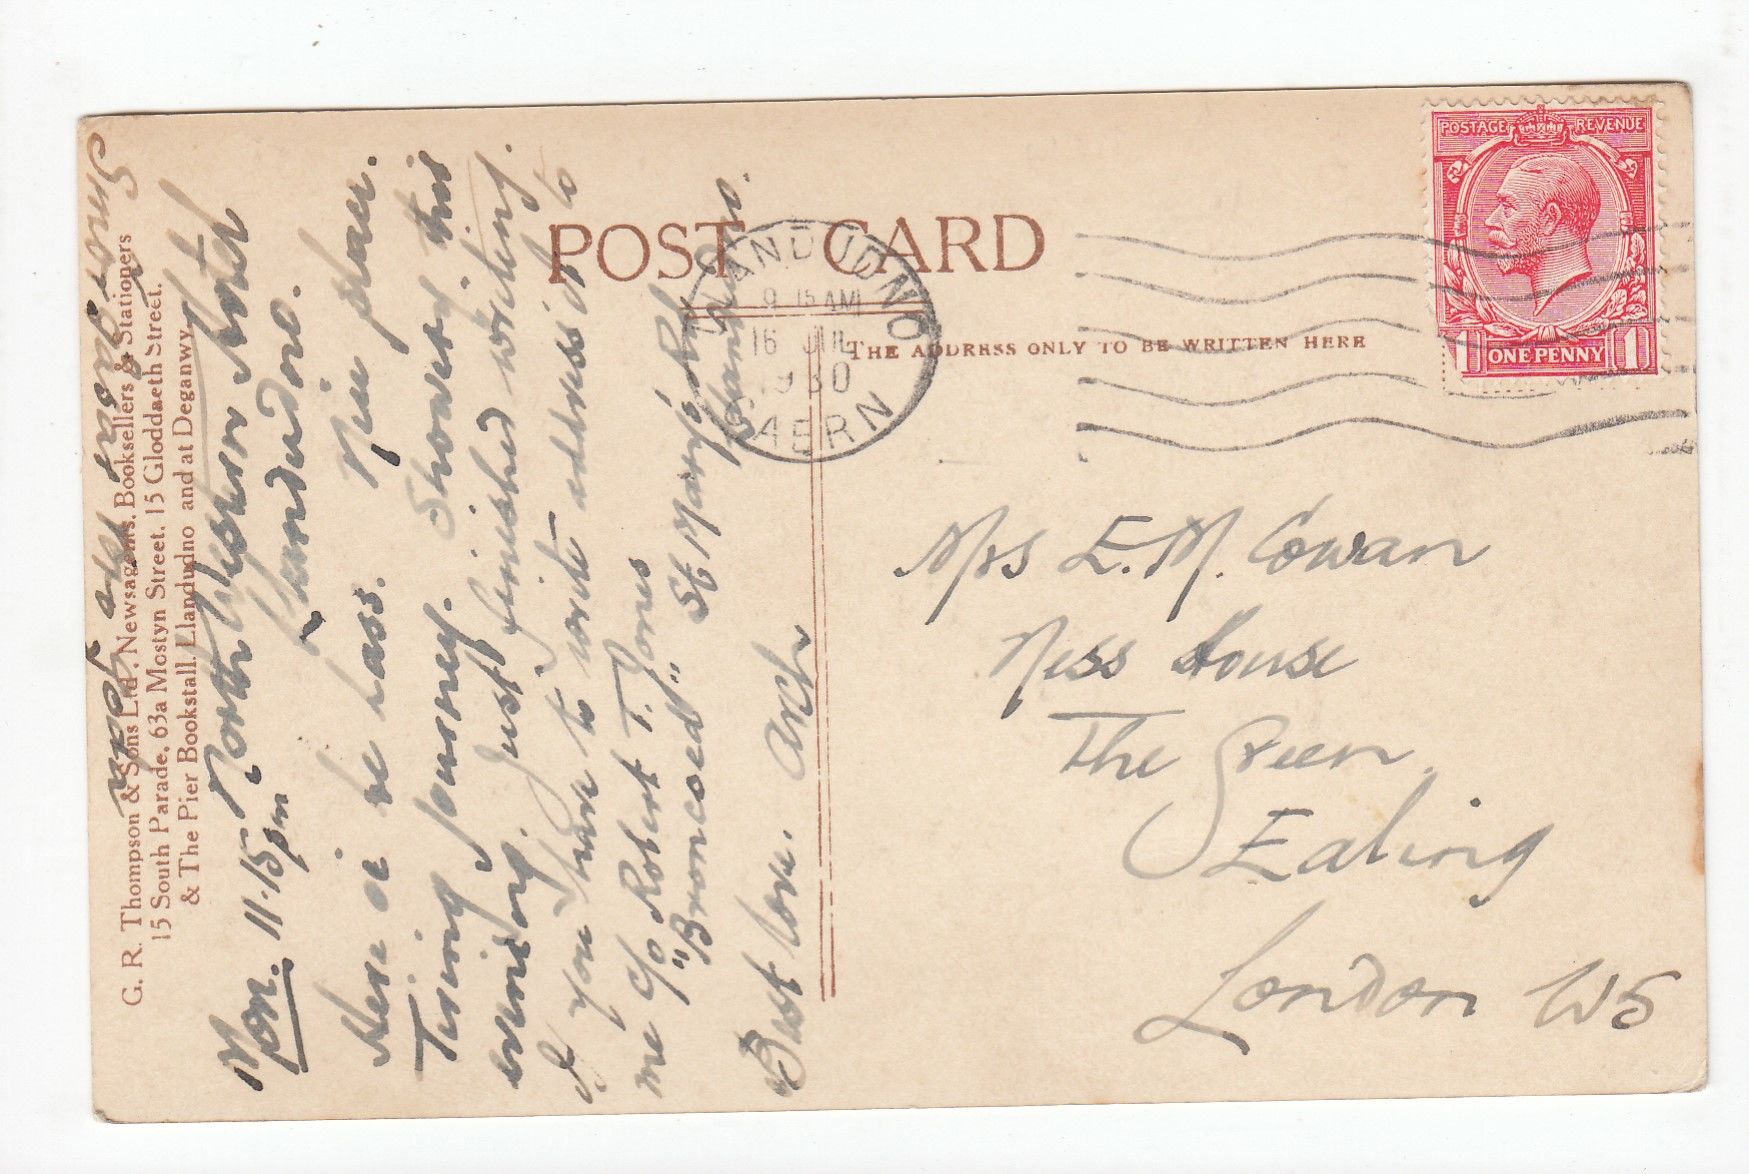 POST CARD
THE ADDRESS ONLY TO BE WRITTEN HERE
POSTAGE REVENUE
1 ONE PENNY 1
LLANDUDNO
9 15 AM
16 JUL
1930
CAERN
G. R. Thompson & Sons Ltd. Newsagents, Booksellers & Stationers
15 South Parade, 63a Mostyn Street, 15 Gloddaeth Street,
& The Pier Bookstall, Llandudno and at Deganwy.
Mon. North Western Hotel
11.15pm Llandudno.
Here all be lass. Nice place.
Tiring journey. Showery this
evening. Just finished writing.
If you have to write address it to
me c/o Robert T. Jones
"Broncoed" St Mary's Rd
Llandudno.
Best love. Arch
Mrs E. M. Cowan
Ness House
The Green.
Ealing
London W5